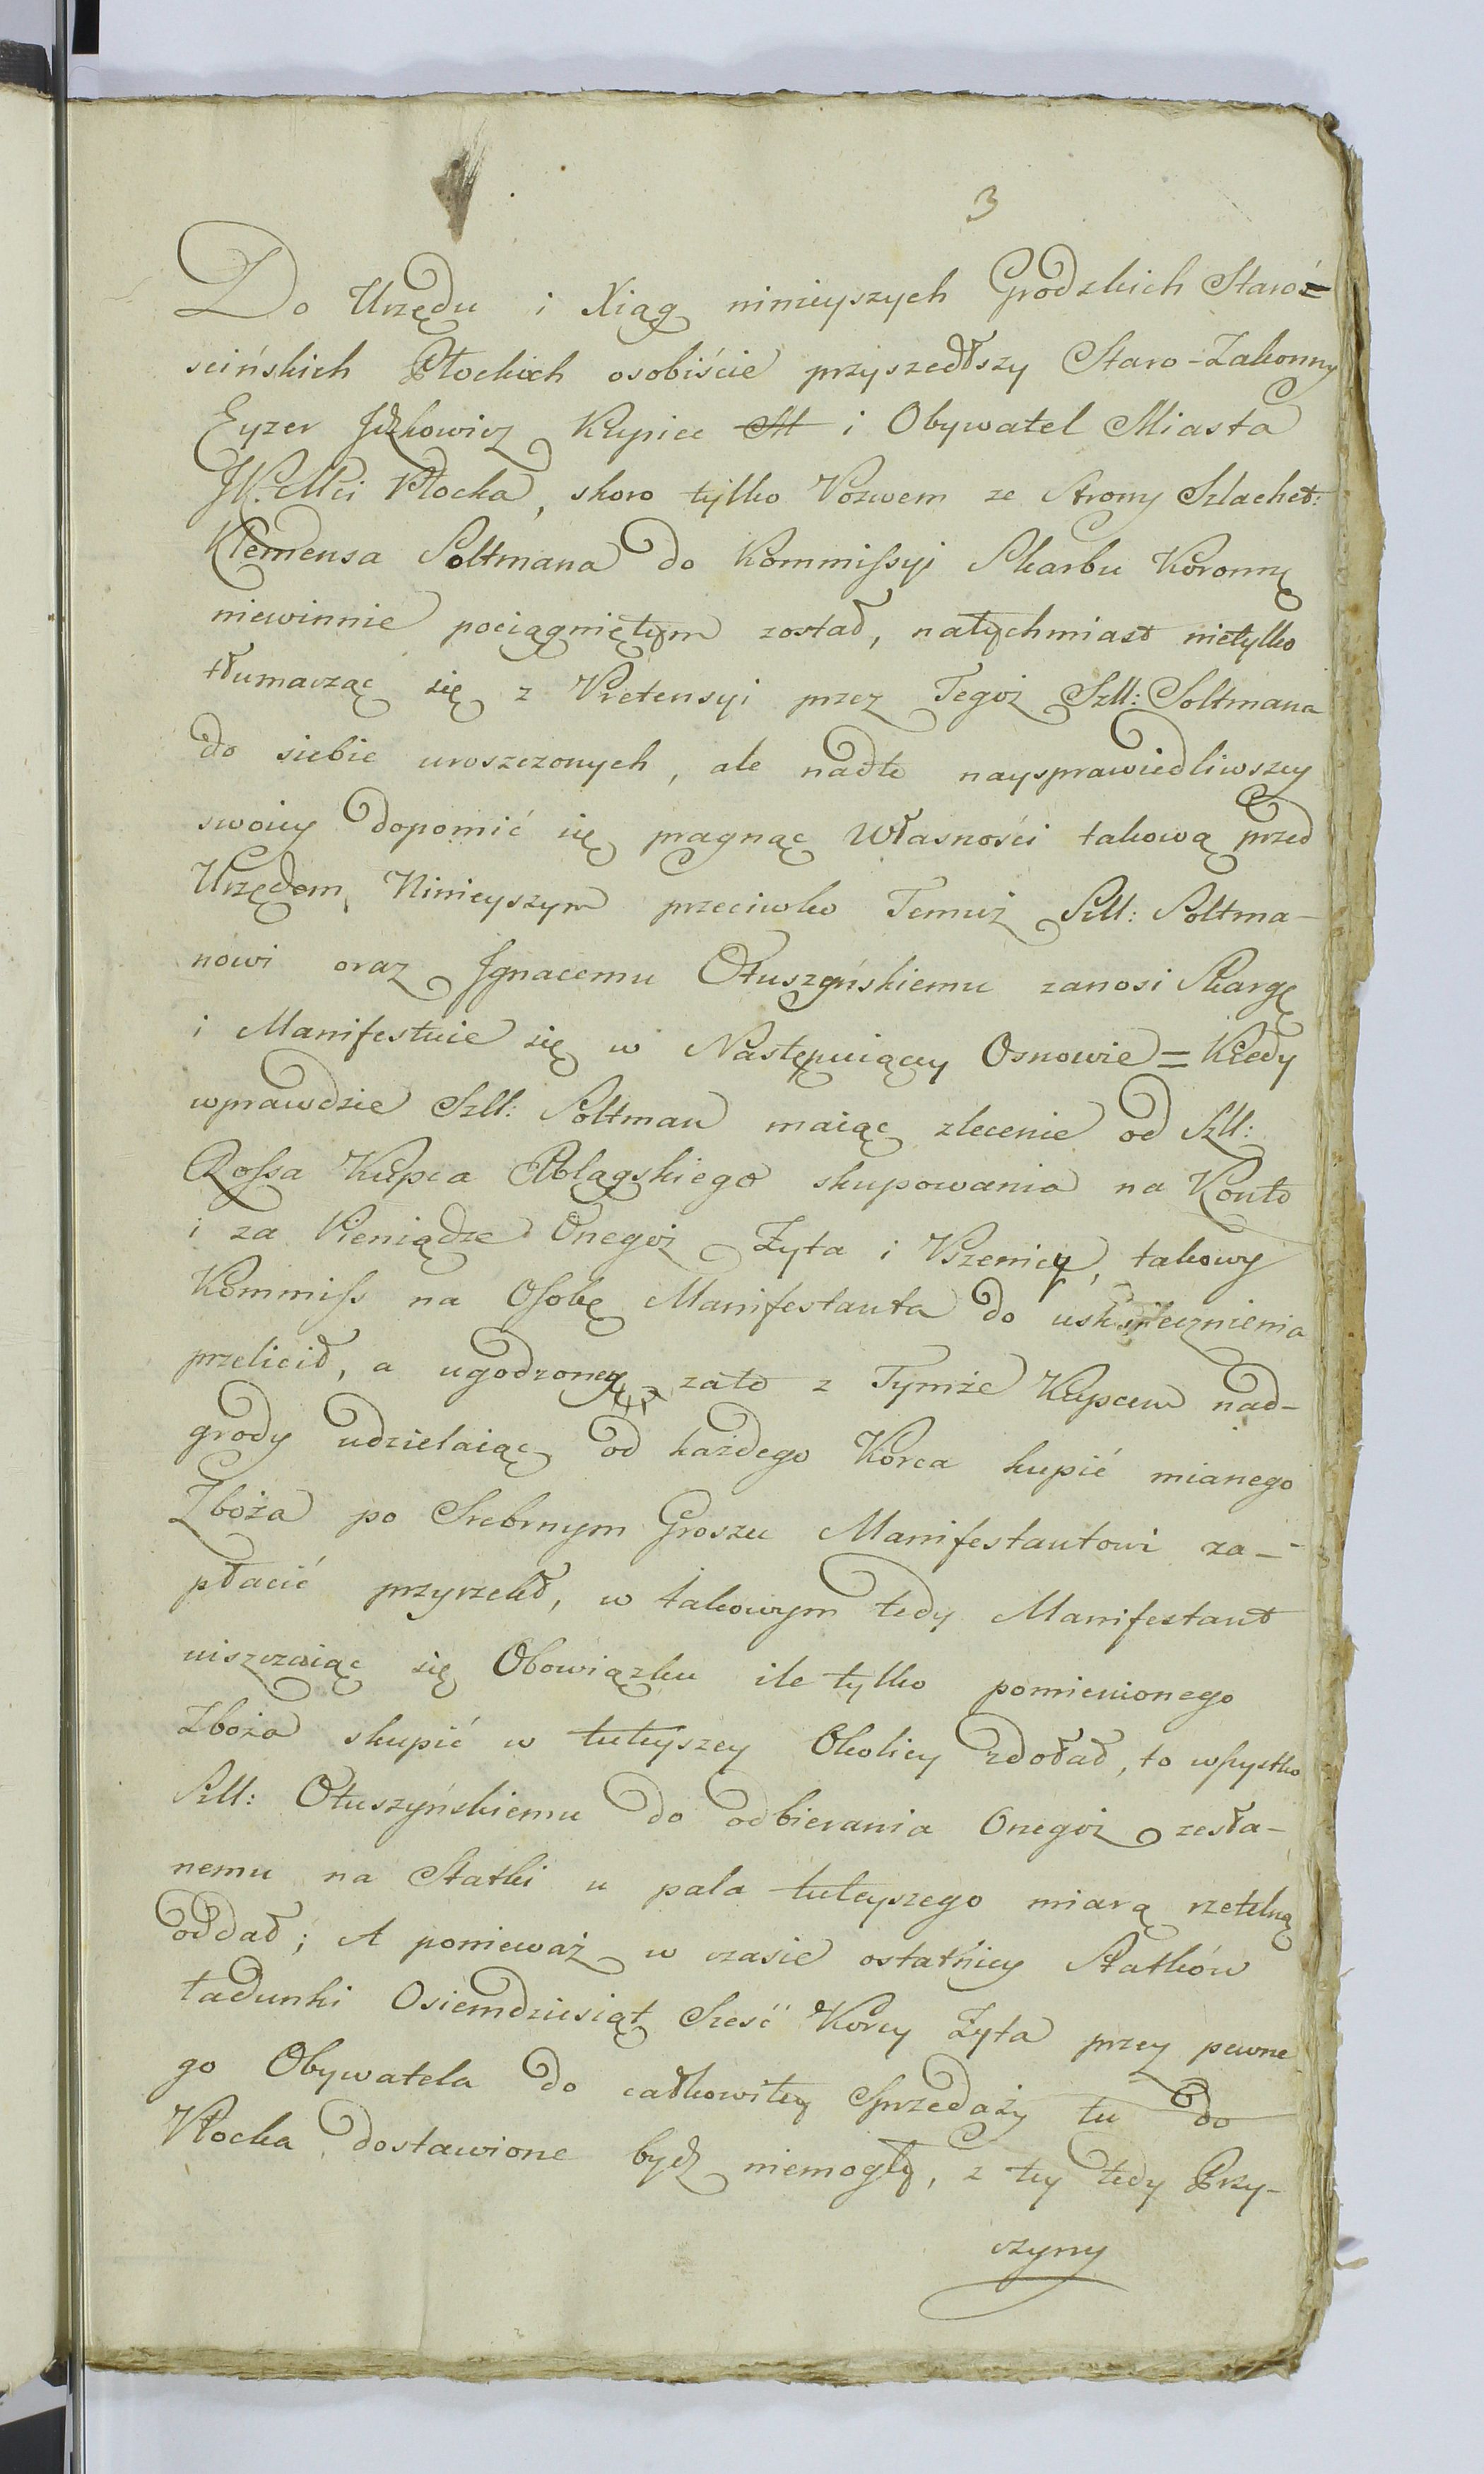 3
Do Urzędu i Xiąg ninieyszych Grodzkich Staroś=
scińskich Płockich osobiście przyszedłszy Staro-Zakonny
Eyzer Jckowicz Kupiec M i Obywatel Miasta
JK.Mci Płocka, skoro tylko Pozwem ze Strony Szlachet:
Klemensa Soltmana do Kommissyi Skarbu Koronnę
niewinnie pociągniętym został, natychmiast nietylko
tłumacząc się z Pretensyi przez Tegoż Szll: Soltmana
do siebie uroszczonych, ale nadto naysprawiedliwszey
swoiey dopomić się pragnąc Własności takową przed
Urzędem Ninieyszym przeciwko Temuż Szll: Soltma-
nowi oraz Jgnacemu Ołuszyńskiemu zanosi Skargę
i Manifestuie się w Następuiącey Osnowie = Kiedy
wprawdzie Szll: Soltman maiąc zlecenie od Szll:
Rossa Kupca Elblągskiego skupowania na Konto
i za Pieniądze Onegoż Żyta i Pszenicy, takowy
Kommiss na Osobę Manifestanta do uskutecznienia
przelicił, a ugodzoney zato z Tymże Kupcem nad-
grody udzielaiąc od każdego Korca kupić mianego
Zboża po Srebrnym Groszu Manifestantowi za-
płacić przyrzekł, w takowym tedy Manifestant
uiszczaiąc się Obowiązku ile tylko pomienionego
Zboża skupić w tuteyszey Okolicy zdołał, to wszystko
Szll: Ołuszyńskiemu do odbierania Onegoż zesła-
nemu na Statki u pala tuteyszego miarą rzetelną
oddał; A ponieważ w czasie ostatniey Statków
ładunki Osiemdziesiąt Sześć Korcy Żyta przez pewne-
go Obywatela do całkowitey Sprzedaży tu do
Płocka dostawione bydź niemogły, z tey tedy Przy-
czyny